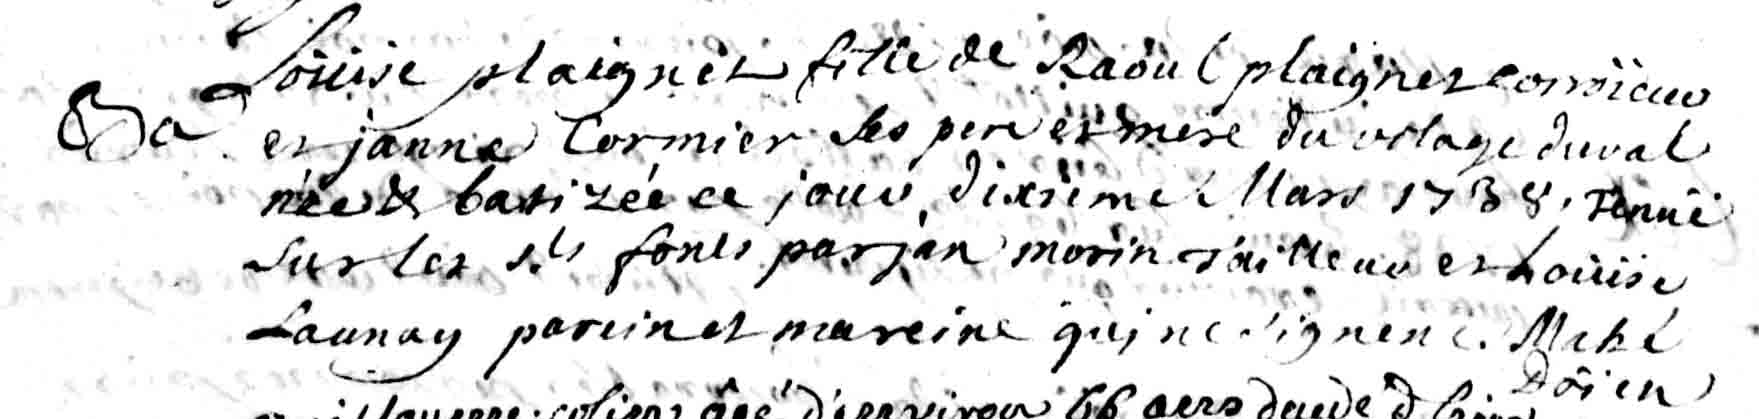 Loüise plaignet fille de Raoul plaignet
Ba et janne Cormier ses pere et mere du vilage duval
née & batizée ce jour dixième Mars 1738, Tenuë
sur les sts fonts par jan morin tailleur et Loüise
Launay parein et mareine qui ne signent. Mahé
Doien
âgé d'environ 66 ans